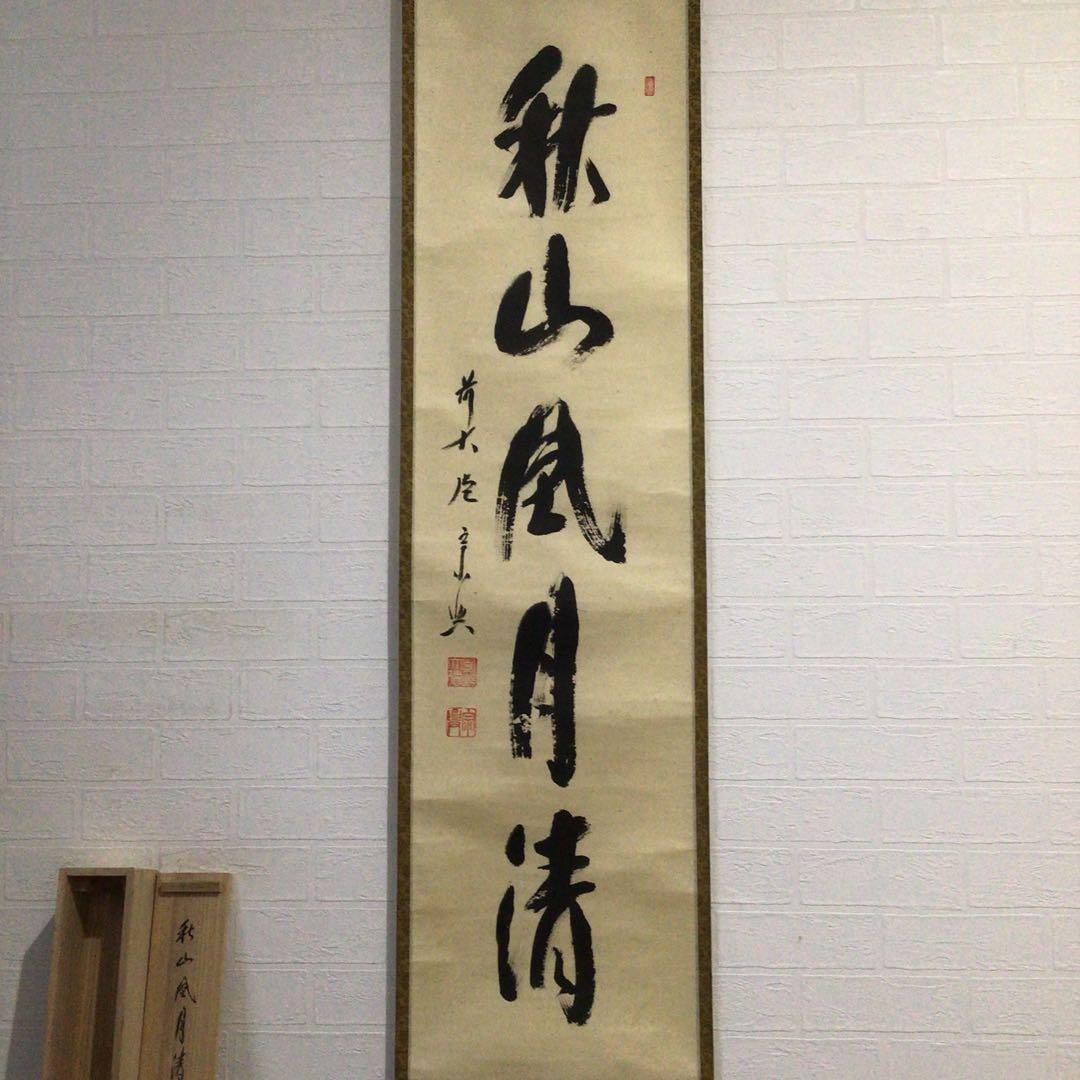 秋山風月清
前大徳宗興
秋山風月清